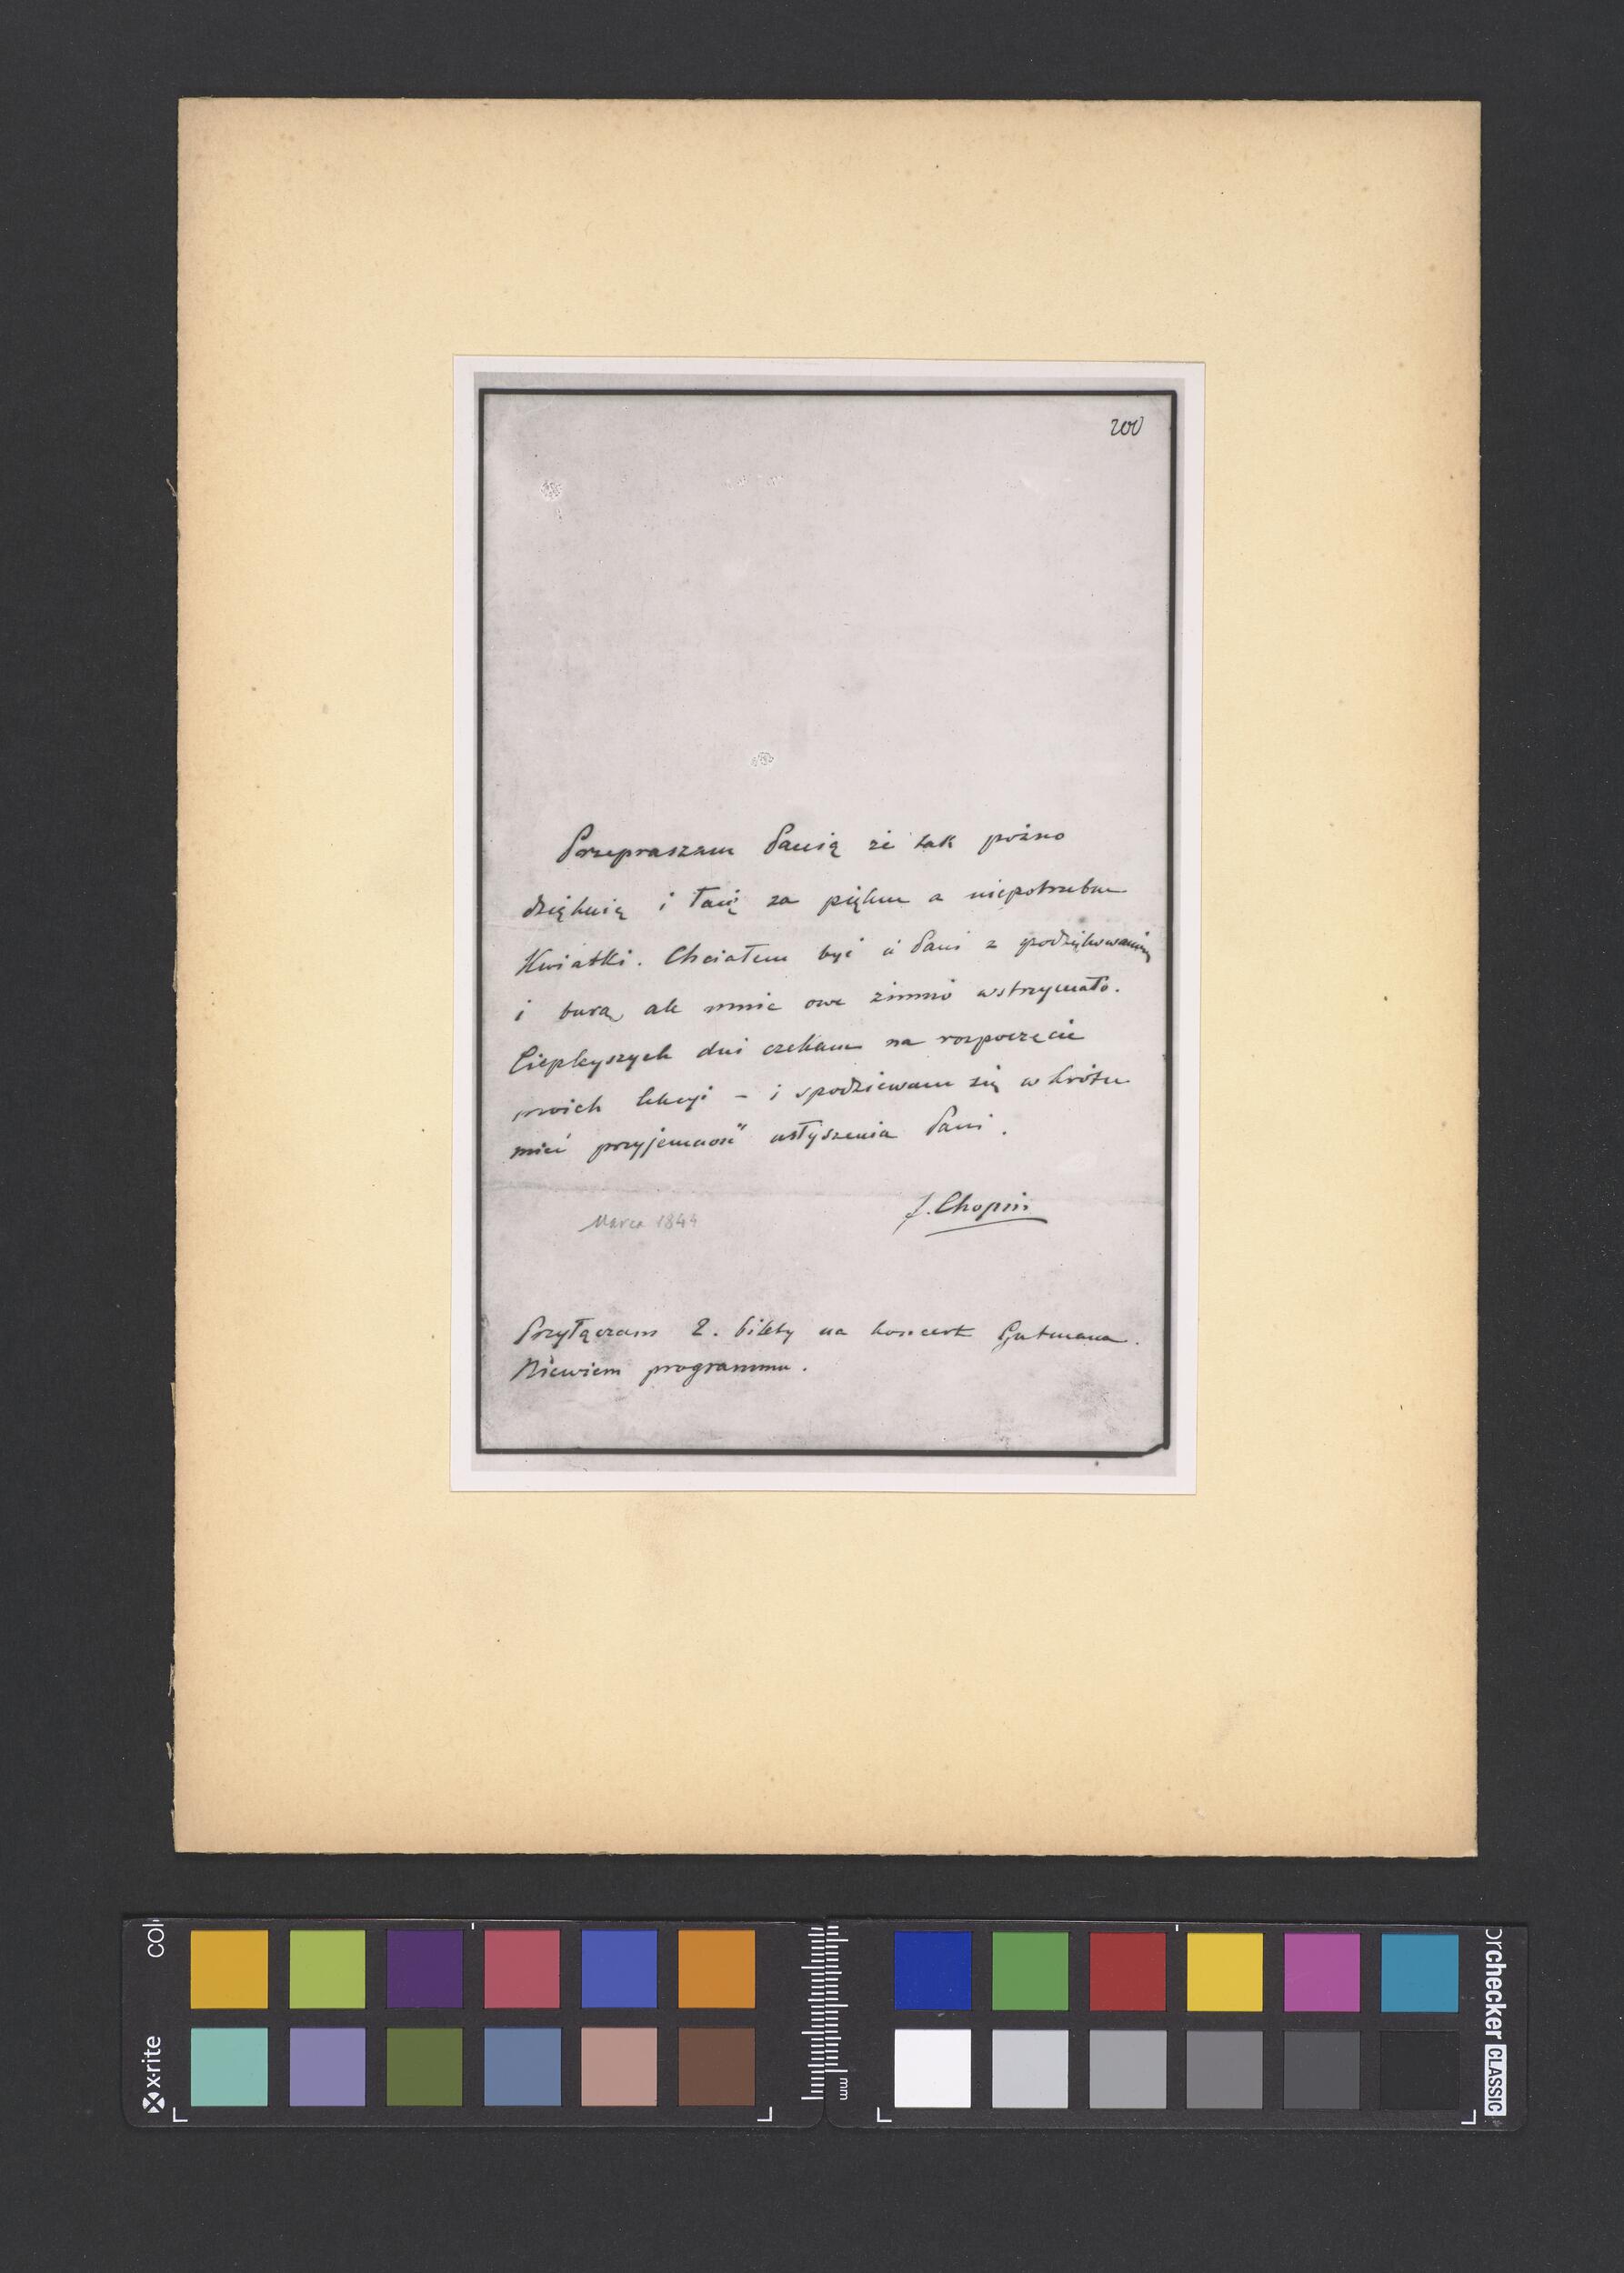 200
Przepraszam Panią że tak pożno
dziękuię i łaię za piękne a niepotrzebne
Kwiatki. Chciałem być u Pani z podziękowaniem
i burą, ale mnie owe zimno wstrzymało.
Cieplejszych dni czekam na rozpoczęcie
moich lekcyi – i spodziewam się wkrótce
mieć przyjemność usłyszenia Pani.
F. Chopin
Marca 1844
Przyłączam 2. bilety na koncert Gutmana.
Niewiem programmu.
x-rite
colorchecker CLASSIC
mm